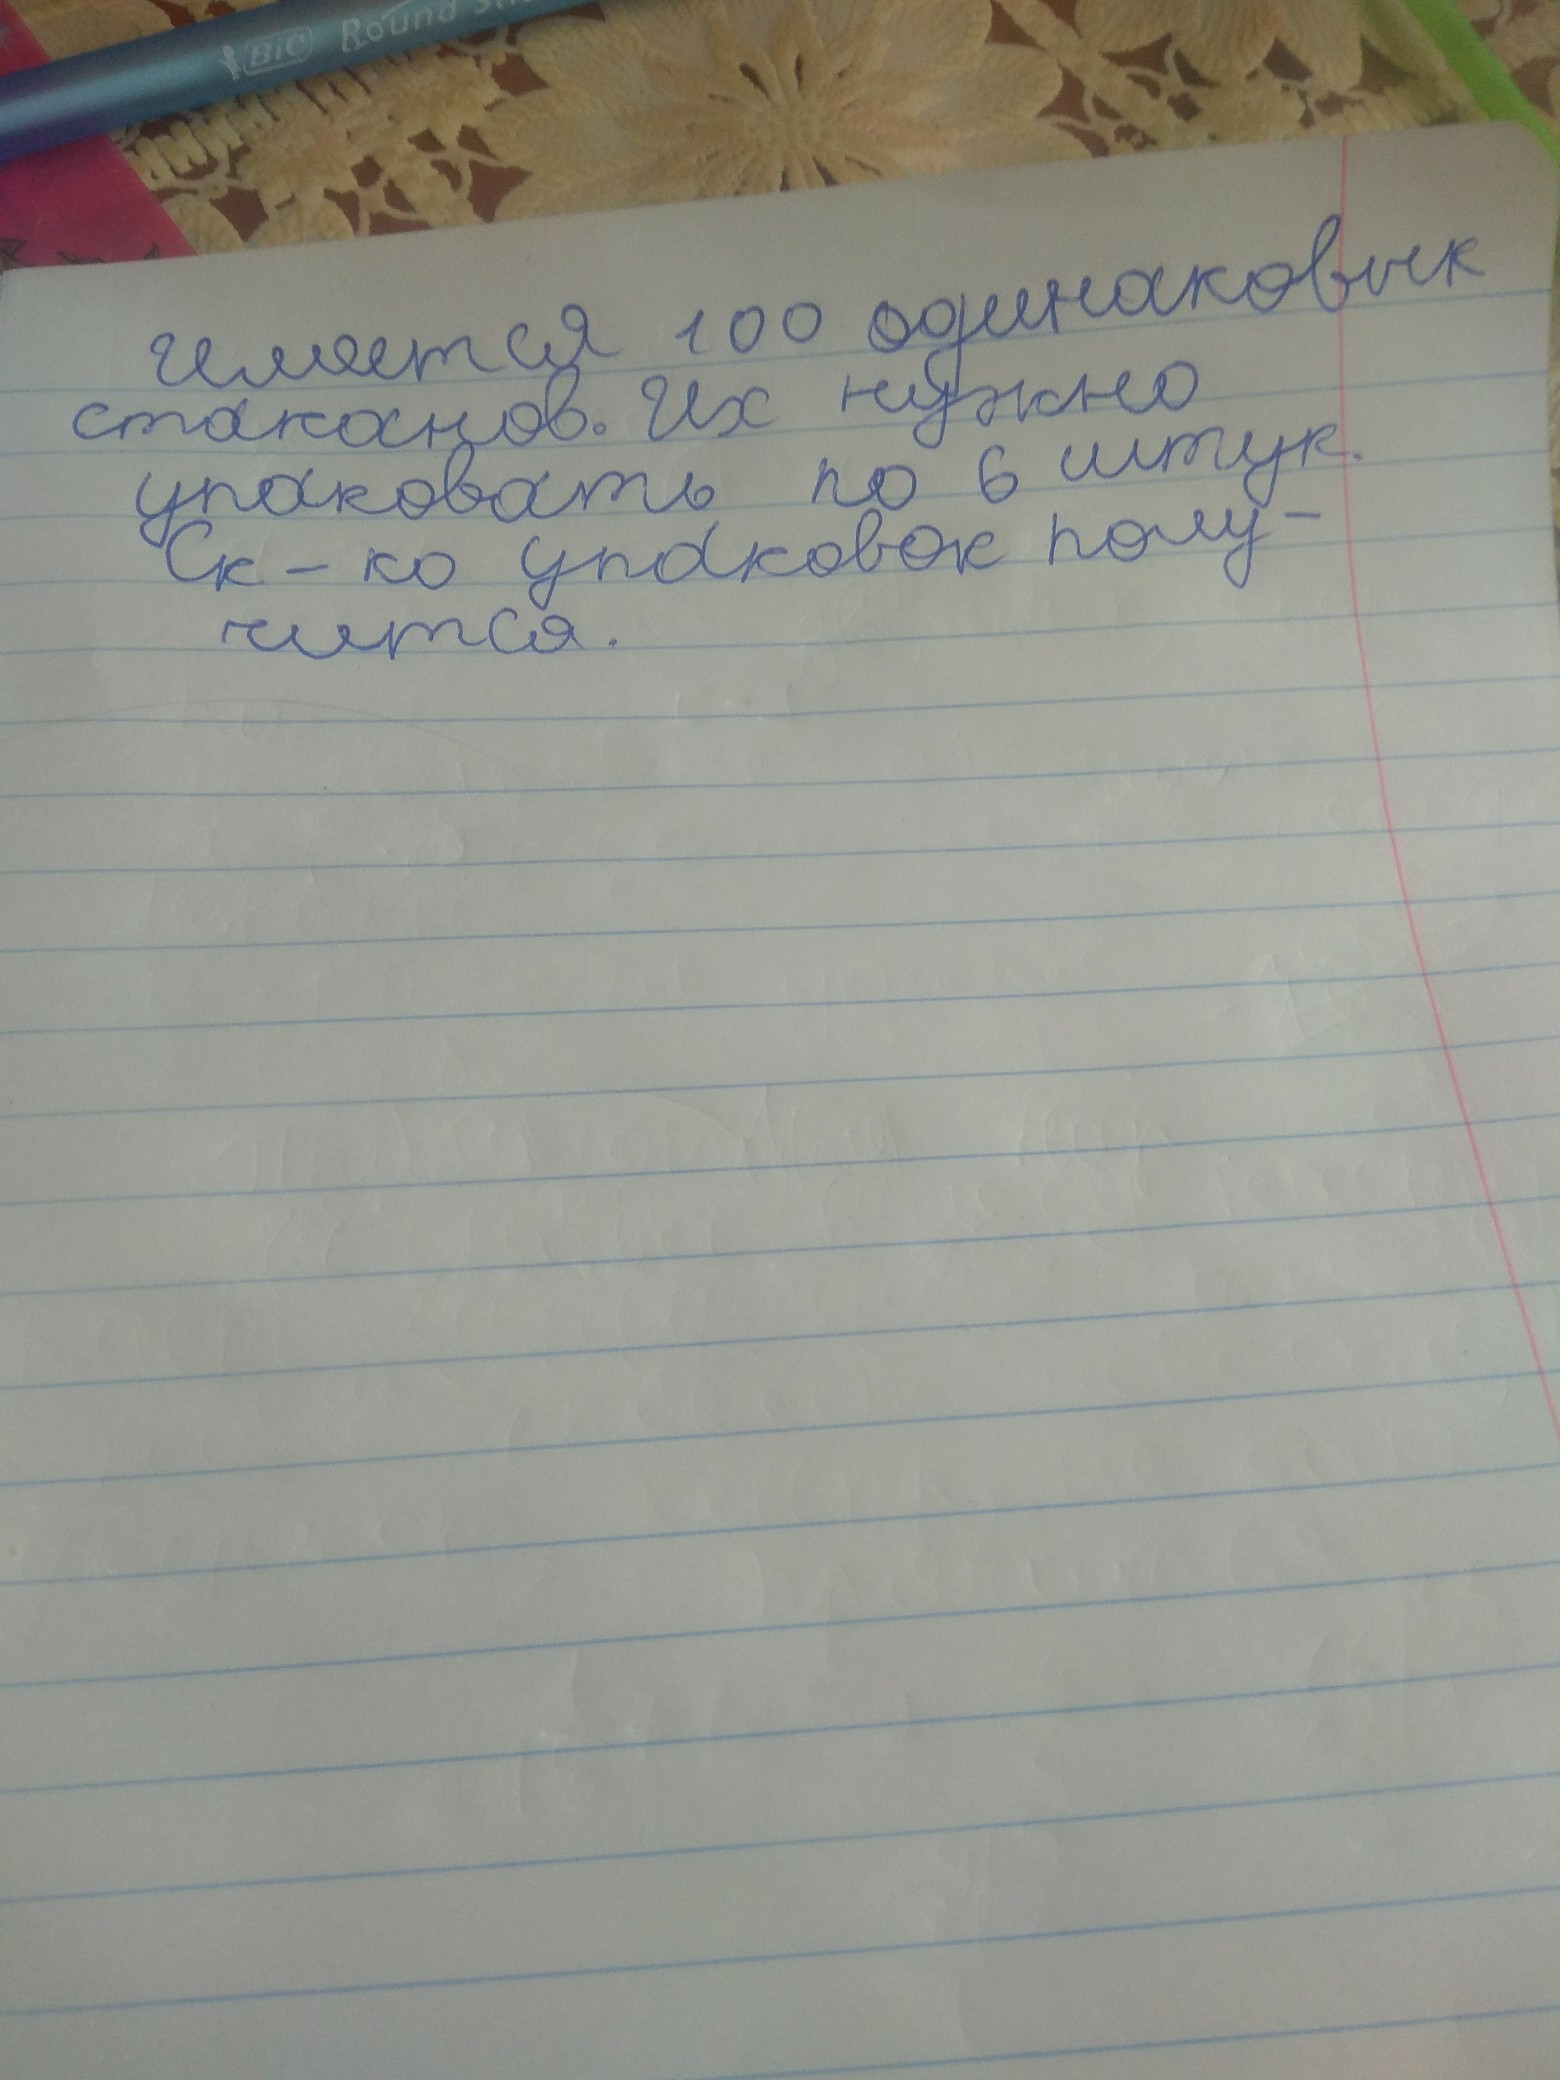 BIC Round Sti
Имеется 100 одинаковых
стаканов. Их нужно
упаковать по 6 штук.
Ск-ко упаковок полу-
чится.